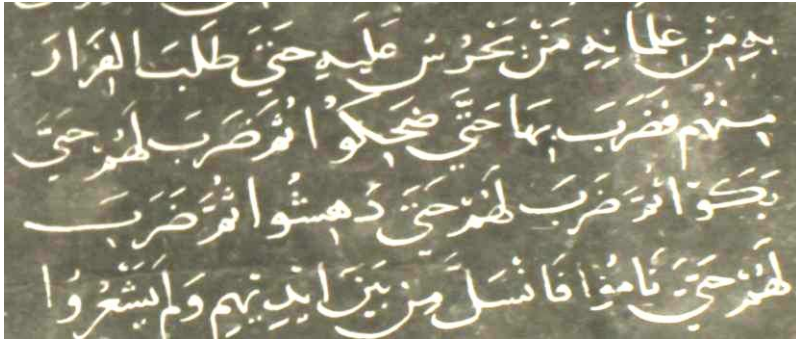 بِهِ مِنْ غِلمَانِهِ مَنْ يَحْرُسُ عَلَيهِ حَتَّى طَلَبَ الفِرَارَ
مِنهُم فَضَرَبَ بِهَا حَتَّي ضَحِكوُا ثُمَّ ضَرَبَ لَهُمْ حَتَّي
بَكَوْا ثُمَّ ضَرَبَ لَهُمْ حَتَّى دُهِشُوا ثُمَّ ضَرَبَ
لَهُمْ حَتَّى نَامُوْا فَانْسَلَّ مِنْ بَيْنَ ايْدِيْهِمِ وَلَمْ يَشْعُرُوا